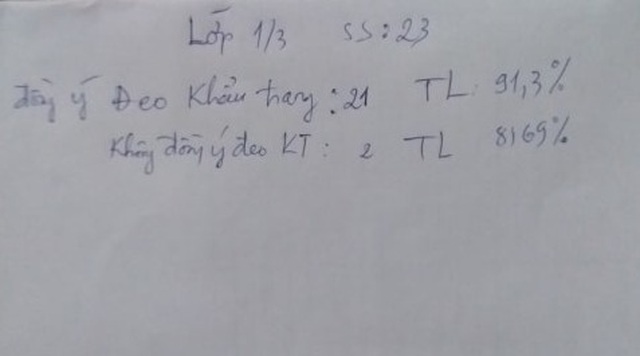 Lớp 1/3 SS: 23
đồng ý Đeo Khẩu trang: 21 TL: 91,3%
Không đồng ý đeo KT: 2 TL 8,69%